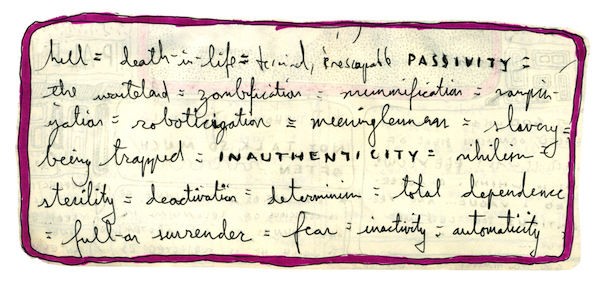 hell = death-in-life = terminal, inescapable PASSIVITY =
the wasteland = zombification = mummification = vampiri-
zation = robotticization = meaninglessness = slavery =
being trapped = INAUTHENTICITY = nihilism =
sterility = deactivation = determinism = total dependence
= full-on surrender = fear = inactivity = automaticity